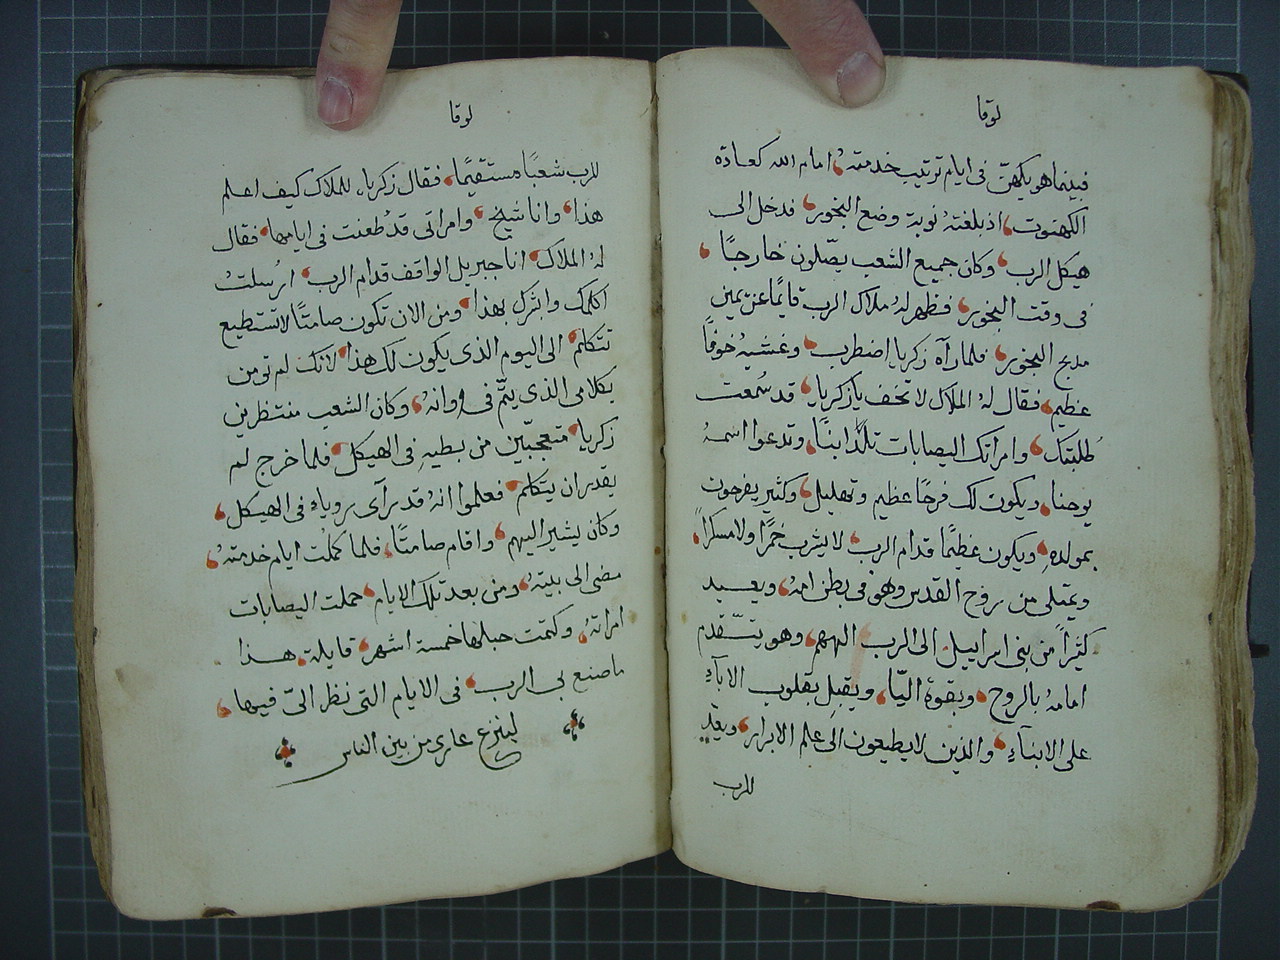 لوقا
فبينما هو يكهن في ايام ترتيب خدمته، امام الله كعادة
الكهنوت، اذ بلغته نوبة وضع البخور، فدخل الى
هيكل الرب، وكان جميع الشعب يصّلون خارجًا،
في وقت البخور، فظهر لهُ ملاك الرب قايمًا عن يمين
مدبح البخور، فلما رآه زكريا إضطرب، وغشيهُ خوفًا
عظيم، فقال لهُ الملاك لا تخف يا زكريا، قد سُمعت
طُلبتك، وامراتك اليصابات تلد ابنًا، وتدعوا اسمهُ
يوحنا، ويكون لك فرحًا عظيم وتهليل، وكثير يفرحون
بمولدهِ، ويكون عظيمًا قدام الرب، لا يشرب خمرًا ولا مسكراً،
ويمتلي من روح القدس وهو في بطن امهُ، ويعيد
كثيراً من بني اسراييل، الى الرب الههم، وهو يتّقدم
امامهُ بالروح، وبقوة اليّا، ويقبل بقلوب الابآءِ
على الابنآءِ، والذين لا يطيعون الى علم الابرار، ويعّد
للرب
لوقا
للرب شعبًا مستقيمًا، فقال زكرياء للملاك كيف اعلم
هذا، وانا شيخ، وامراتى قد طعنت فى ايامها، فقال
لهُ الملاك، انا جبريل الواقف قدام الرب، ارُسلتُ
اكلمك وابشرك بهذا، ومن الان تكون صامتًا لا تستطيع
تتكلم، الى اليوم الذى يكون لك هذا، لانك لم تومن
بكلامى الذى يتمّ فى اوانهُ، وكان الشعب منتظرين
زكريا، متعجبّين من بطيهِ فى الهيكل، فلما خرج لم
يقدر ان يتكلم، فعلموا انهُ قد رآى روياءِ فى الهيكل،
وكان يشير اليهم، واقام صامتًا، فلما كملت ايام خدمتهُ،
مضى الى بيتهُ، ومن بعد تلك الايام، حملت اليصابات
امراتهُ، وكتمت حبلها خمسة اشهر، قايلة، هذا
ما صنع بى الرب، فى الايام التى نظر الىّ فيها،
لينزع عارى من بين الناس